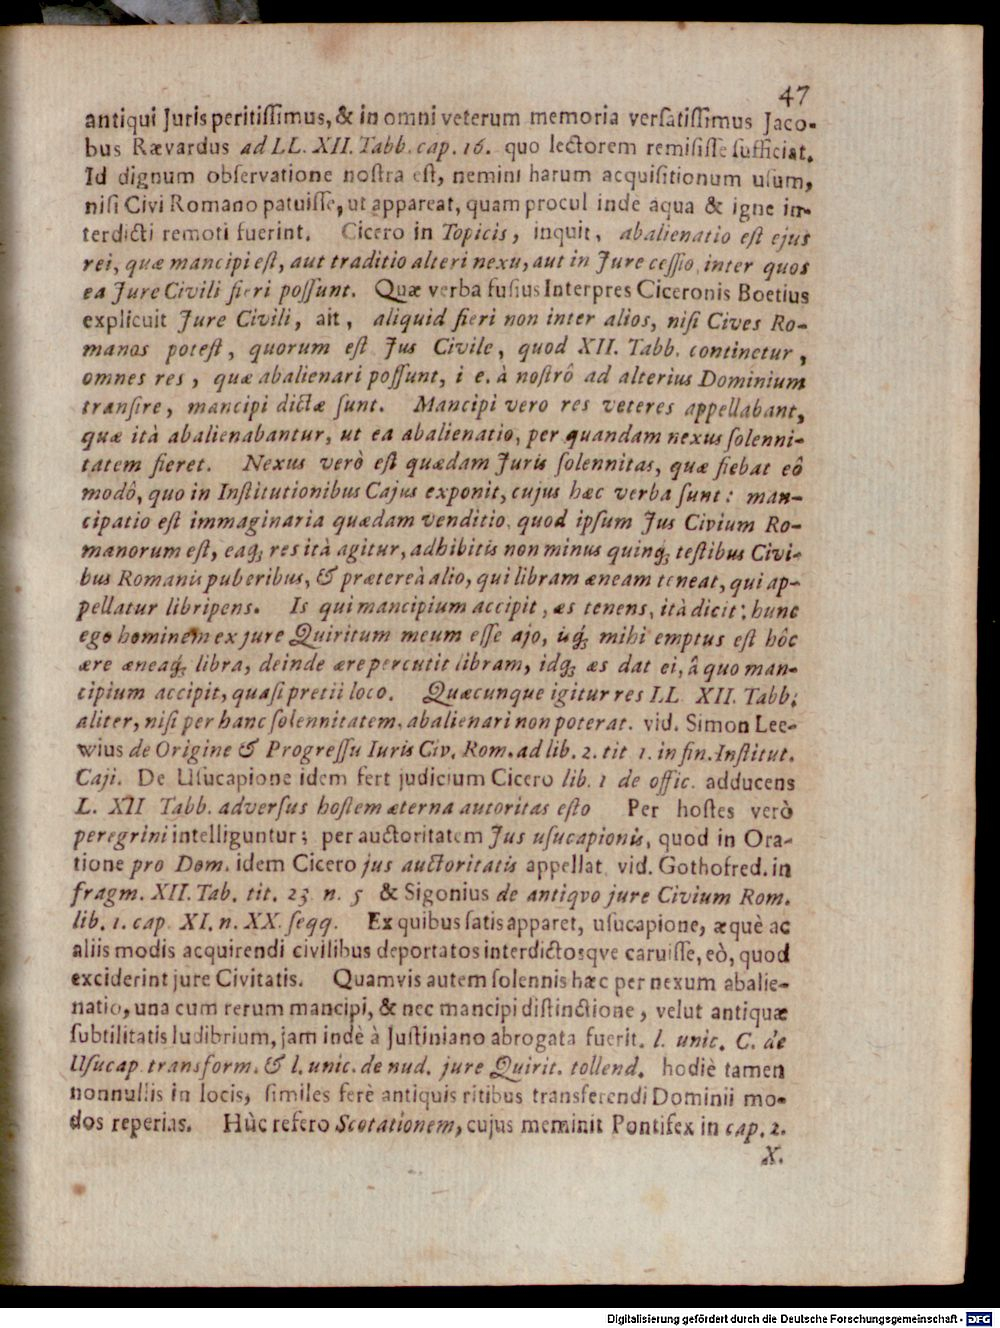 47
antiqui Juris peritiſſimus, & in omni veterum memoria verſatiſſimus Jaco-
bus Rævardus ad LL. XII. Tabb. cap. 16. quo lectorem remiſiſſe ſufficiat.
Id dignum obſervatione noſtra eſt, nemini harum acquiſitionum uſum,
niſi Civi Romano patuiſſe, ut appareat, quam procul inde aqua & igne in-
terdicti remoti fuerint. Cicero in Topicis, inquit, abalienatio eſt ejus
rei, quæ mancipi eſt, aut traditio alteri nexu, aut in Jure ceſſio, inter quos
ea Jure Civili fieri poſſunt. Quæ verba fuſius Interpres Ciceronis Boetius
explicuit Jure Civili, ait, aliquid fieri non inter alios, niſi Cives Ro-
manos poteſt, quorum eſt Jus Civile, quod XII. Tabb. continetur,
omnes res, quæ abalienari poſſunt, i e. à noſtrô ad alterius Dominium
tranſire, mancipi dictæ ſunt. Mancipi vero res veteres appellabant,
quæ ità abalienabantur, ut ea abalienatio, per quandam nexus ſolenni-
tatem fieret. Nexus verò eſt quædam Juris ſolennitas, quæ fiebat eô
modô, quo in Inſtitutionibus Cajus exponit, cujus hæc verba ſunt: man-
cipatio eſt immaginaria quædam venditio, quod ipſum Jus Civium Ro-
manorum eſt, eaq; res ità agitur, adhibitis non minus quinq; teſtibus Civi-
bus Romanis puberibus, & prætereà alio, qui libram æneam teneat, qui ap-
pellatur libripens. Is qui mancipium accipit, æs tenens, ità dicit: hunc
ego hominem ex jure Quiritum meum eſſe ajo, isq; mihi emptus eſt hôc
ære æneaq; libra, deinde ære percutit libram, idq; æs dat ei, â quo man-
cipium accipit, quaſi pretii loco. Quæcunque igitur res LL XII. Tabb;
aliter, niſi per hanc ſolennitatem, abalienari non poterat. vid. Simon Lee-
wius de Origine & Progreſſu Iuris Civ. Rom. ad lib. 2. tit 1. in fin. Inſtitut.
Caji. De Uſucapione idem fert judicium Cicero lib. 1 de offic. adducens
L. XII Tabb. adverſus hoſtem æterna autoritas eſto Per hoſtes verò
peregrini intelliguntur; per auctoritatem Jus uſucapionis, quod in Ora-
tione pro Dom. idem Cicero jus auctoritatis appellat. vid. Gothofred. in
fragm. XII. Tab. tit. 23 n. 5 & Sigonius de antiqvo jure Civium Rom.
lib. 1. cap. XI. n. XX. ſeqq. Ex quibus ſatis apparet, uſucapione, æquè ac
aliis modis acquirendi civilibus deportatos interdictosqve caruiſſe, eò, quod
exciderint jure Civitatis. Quamvis autem ſolennis hæc per nexum abalie-
natio, una cum rerum mancipi, & nec mancipi diſtinctione, velut antiquæ
ſubtilitatis ludibrium, jam indè à Juſtiniano abrogata fuerit. l. unic. C. de
Uſucap. transform. & l. unic. de nud. jure Quirit. tollend. hodiè tamen
nonnullis in locis, ſimiles ferè antiquis ritibus transferendi Dominii mo-
dos reperias. Hùc refero Scotationem, cujus meminit Pontifex in cap. 2.
X.
Digitalisierung gefördert durch die Deutsche Forschungsgemeinschaft - DFG